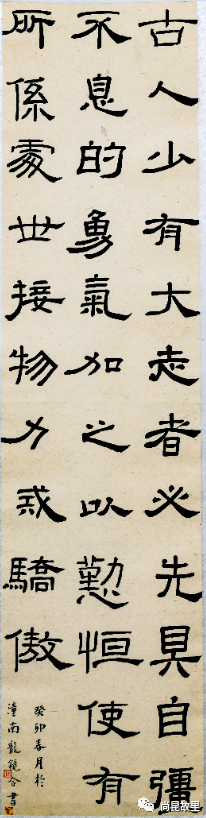 古人少有大志者必先具自彊
不息的勇氣加之以懃恒使有
所係處世接物力戒驕傲
癸卯春月於
潼南龍合書
尚昆故里